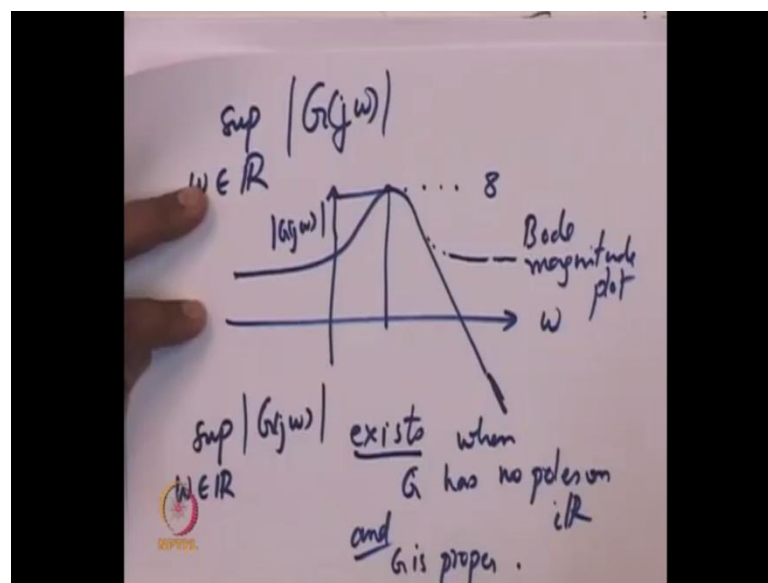 sup |G(jω)|
ω∈ℝ
8
|G(jω)|
Bode
magnitude
plot
ω
sup |G(jω)| exists when
ω∈ℝ
G has no poles on
iℝ
and
G is proper.
NPTEL